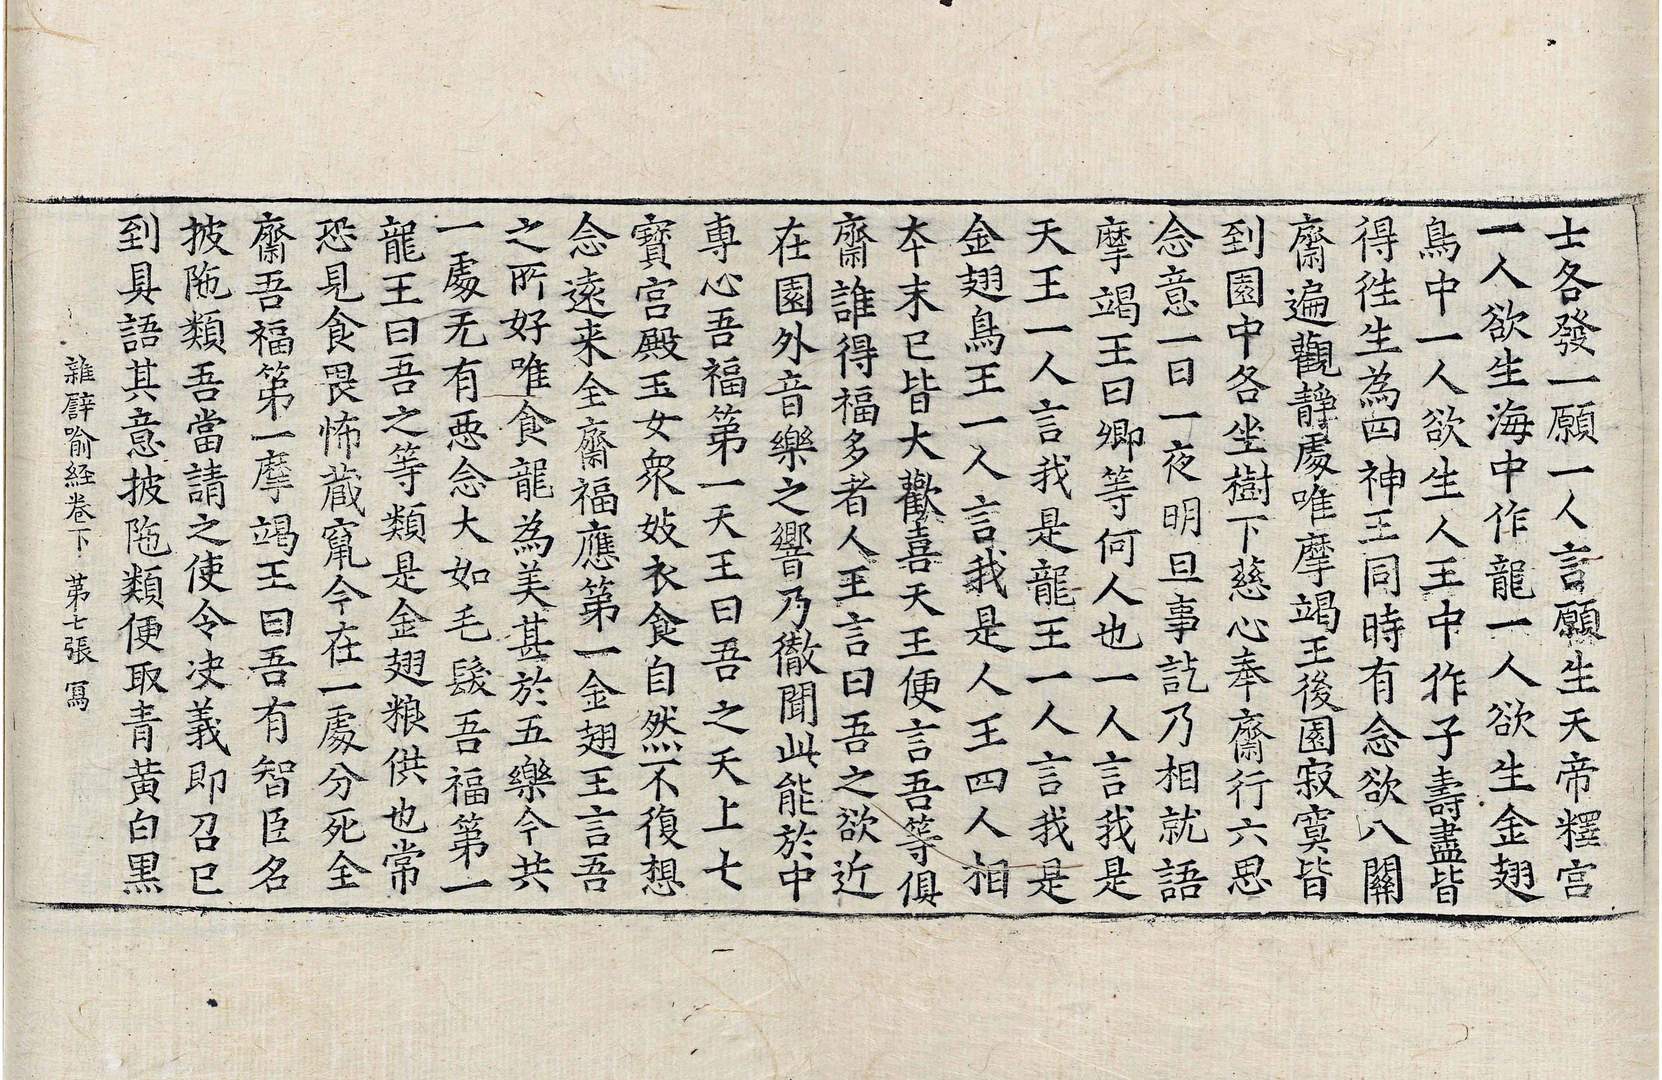 士各發一願一人言願生天帝釋宮
一人欲生海中作龍一人欲生金翅
鳥中一人欲生人王中作子壽盡皆
得徃生為四神王同時有念欲八關
齋遍觀靜處唯摩竭王後園寂寞皆
到園中各坐樹下慈心奉齋行六思
念意一日一夜明旦事訖乃相就語
摩竭王曰卿等何人也一人言我是
天王一人言我是龍王一人言我是
金翅鳥王一人言我是人王四人相
本末已皆大歡喜天王便言吾等俱
齋誰得福多者人王言曰吾之欲近
在園外音樂之響乃徹聞此能於中
專心吾福第一天王曰吾之天上七
寶宮殿玉女衆妓衣食自然不復想
念遠来全齋福應第一金翅王言吾
之所好唯食龍為美甚於五樂今共
一處无有惡念大如毛髮吾福第一
龍王曰吾之等類是金翅粮供也常
恐見食畏怖藏竄今在一處分死全
齋吾福第一摩竭王曰吾有智臣名
披陁類吾當請之使令决義即召已
到具語其意披陁類便取青黃白黑
雜譬喻經卷下 第七張 寫